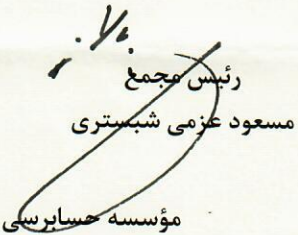 رئیس مجمع
مسعود عزمی شبستری
مؤسسه حسابرسی